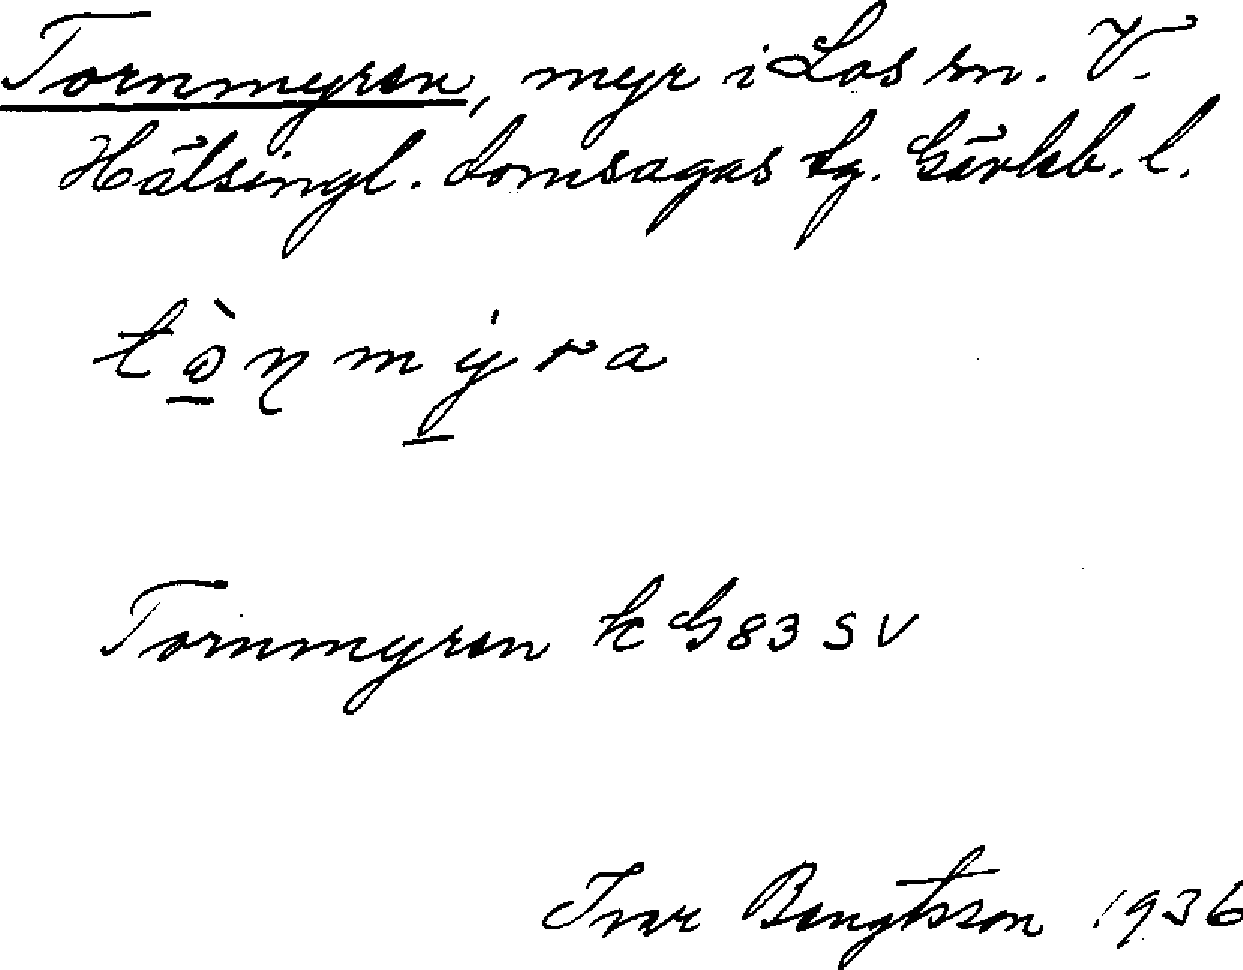 Tornmyren, myr i Los sn. V.
Hälsingl. domsagas tg. Gävleb. l.
tɔ̠̀ɳmy̠̍ra
Tornmyren k G83 SV
Ivar Bengtsson 1936